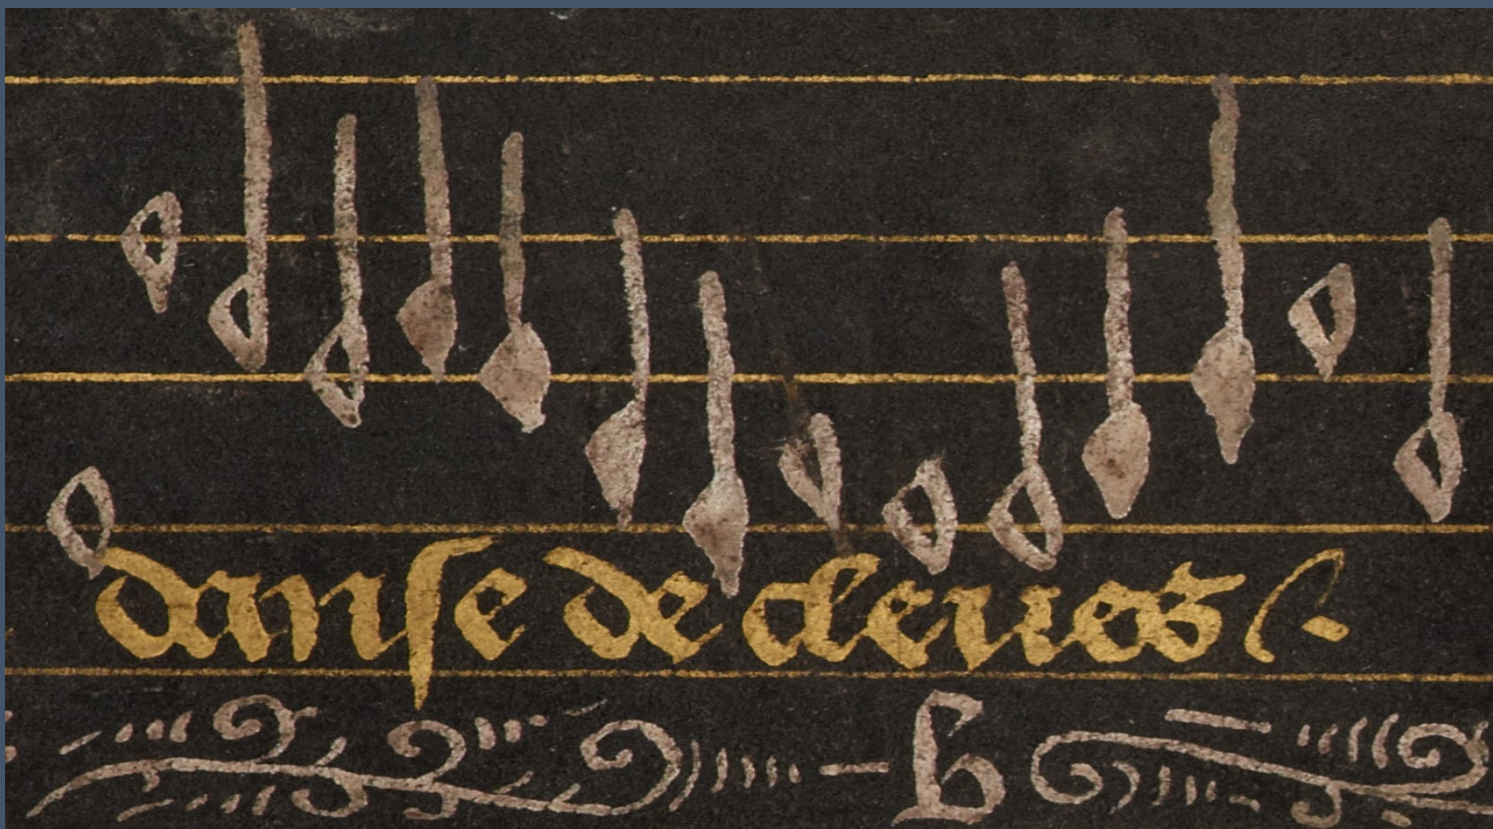 danse de cleues
b